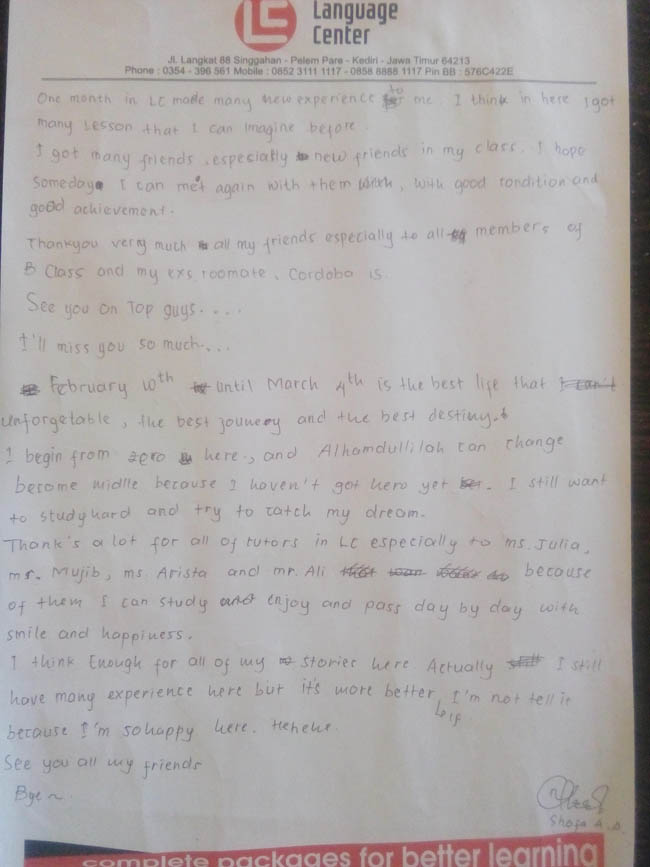 LC Language
Center
Jl. Langkat 88 Singgahan - Pelem Pare - Kediri - Jawa Timur 64213
Phone : 0354 - 396 561 Mobile : 0852 3111 1117 - 0858 8868 1117 Pin BB : 576C422E
One month in LC made many new experience to me. I think in here I got
many Lesson that I can imagine before.
I got many friends, especially new friends in my class. I hope
Someday I can met again with them, with good condition and
good achievement.
Thankyou very much all my friends especially to all members of
B Class and my exs roomate, Cordoba is.
See you on Top guys....
I'll miss you so much...
February 10th until March 4th is the best life that
unforgetable, the best jouney and the best destiny.
I begin from zero here, and Alhamdullilah can change
become midlle because I haven't got hero yet. I still want
to study hard and try to catch my dream.
Thank's a lot for all of tutors in LC especially to ms. Julia,
mr. Mujib, ms. Arista and mr. Ali because
of them I can study enjoy and pass day by day with
smile and happiness.
I think Enough for all of my stories here Actually I still
have many experience here but it's more better if I'm not tell it
because I'm so happy here. Hehehe.
See you all my friends
Bye~
Shofa A.
complete packages for better learning